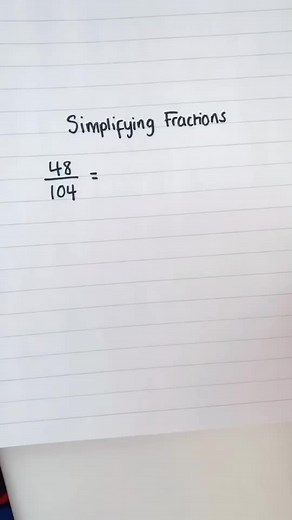 Simplifying Fractions
48
104 =